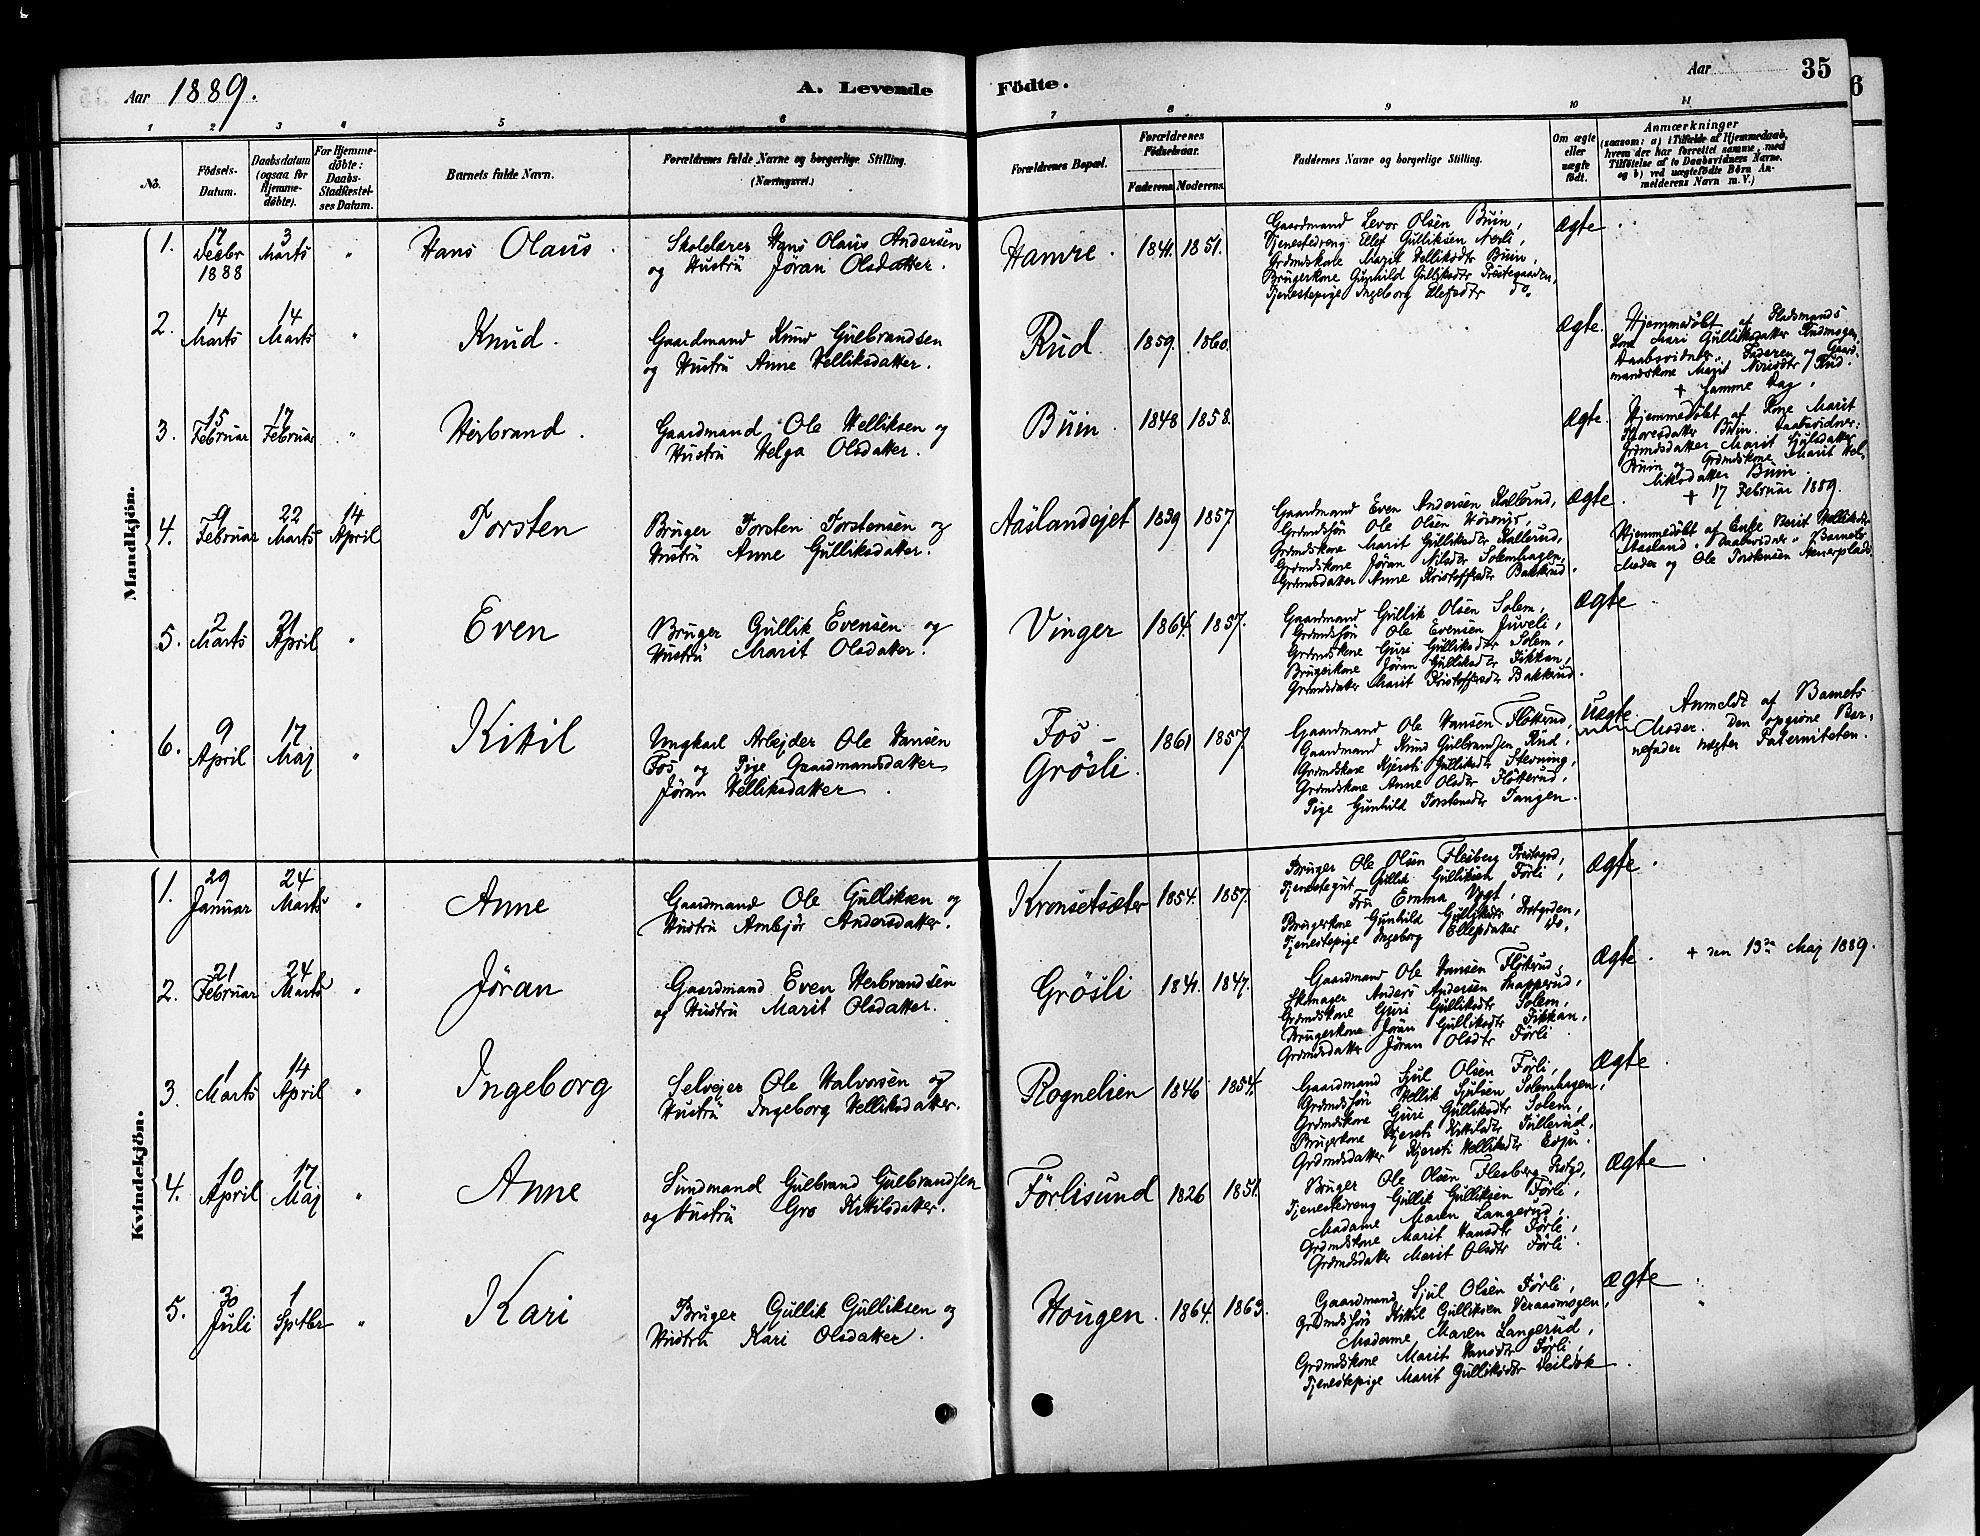 Aar 1889. A. Levende
Födte. Aar 35
1 2 3 4 5 6
7 8 9 10 11
No.
Födsels-
Datum.
Daabsdatum
(ogsaa for
Hjemme-
döbte).
For Hjemme-
döbte:
Daabs-
Stadfæstel-
ses Datum.
Barnets fulde Navn.
Forældrenes fulde Navne og borgerlige Stilling.
(Næringsvei.)
Forældrenes Bopæl.
Forældrenes
Födselsaar.
Faderens. Moderens.
Faddernes Navne og borgerlige Stilling.
Om ægte
eller
uægte
födt.
Anmærkninger
(saasom: a) i Tilfælde af Hjemmedaab,
hvem der har forrettet samme, med
Tilföielse af to Daabsvidners Navne.
og b) ved uægtefödte Börn An-
melderens Navn m. V.)
Mandkjön.
1. 17 Decbr 1888 3 Marts " Hans Olaus.
Skolelærer Hans Olaus Andersen
og Hustru Jöran Olsdatter.
Hamre. 1841. 1851.
Gaardmand Levor Olsen Buin,
Tjenestedreng Ellef Gulliksen Nerli,
Grdmdskone Marit Velliksdtr Buin,
Brugerkone Gunhild Gulliksdtr Prestegaarden,
Tjenestepige Ingeborg Ellefsdtr do.
Ægte.
2. 14 Marts 14 Marts " Knud.
Gaardmand Knud Gulbrandsen
og Hustru Anne Velliksdatter.
Rud. 1859. 1860.
Ægte.
Hjemmedöbt af Pladsmands
kone Mari Gulliksdatter Rudmogen
Daabsvidner: Faderen og Gaard-
mandskone Marit Nirisdtr Rud.
+ samme Dag.
3. 15 Februar 17 Februar " Herbrand.
Gaardmand Ole Velliksen og
Hustru Helga Olsdatter.
Buin. 1848 1858.
Ægte.
Hjemmedöbt af Kone Marit
Toresdatter Buin. Daabsvidner:
Grdmdsdatter Marit Sjulsdatter
Buin og Grdmdskone Marit Vel-
liksdatter Buin.
+ 17 Februar 1889.
4. 9 Februar 22 Marts 14 April Torsten
Bruger Torsten Torstensen og
Hustru Anne Gulliksdatter.
Aaslandejet 1839 1857.
Gaardmand Even Andersen Kallerud,
Grdmdssön Ole Olsen
Grdmdskone Marit Gulliksdtr Kallerud,
Grdmdskone Jöran Nilsdtr Solemhagen,
Grdmdsdatter Anne Kristoffersdtr Bakkerud.
Ægte.
Hjemmedöbt af Enke Berit Velliksdtr
Aasland. Daabsvidner: Barnets
Moder og Ole Torstensen
5. 2 Marts 21 April " Even
Bruger Gullik Evensen og
Hustru Marit Olsdatter.
Vinger 1864. 1857.
Gaardmand Gullik Olsen Solem,
Grdmdssön Ole Evensen Juveli,
Grdmdskone Guri Gulliksdtr Solem,
Brugerkone Jöran Gulliksdtr Fikkan,
Grdmdsdatter Marit Kristoffersdtr Bakkerud.
Ægte
6. 9 April 17 Maj " Kittil
Ungkarl Arbejder Ole Hansen
Fos og Pige Gaardmandsdatter
Jöran Velliksdatter.
Fos –
Grösli. 1861 1857.
Gaardmand Ole Hansen Flötterud,
Gaardmand Knud Gulbrandsen Rud,
Grdmdskone Kjersti Gulliksdtr Stevning,
Grdmdskone Anne Olsdtr Flötterud,
Pige Gunhild Torstensdtr Tangen.
Uægte
Anmeldt af Barnets
Moder. Den opgivne Bar-
nefader nægter Paterniteten.
Kvindekjön.
1. 29 Januar 24 Marts " Anne
Gaardmand Ole Gulliksen og
Hustru Ambjör Andersdatter.
Kronsetsæter 1854. 1857.
Bruger Ole Olsen Flesberg Prestegrd,
Tjenestegut Gullik Gulliksen Förli,
Fru Emma Vogt,
Brugerkone Gunhild Gulliksdtr Prstgrden,
Tjenestepige Ingeborg Ellefsdatter do.
Ægte.
2. 21 Februar 24 Marts " Jöran
Gaardmand Even Herbrandsen
og Hustru Marit Olsdatter.
Grösli 1841. 1847.
Gaardmand Ole Hansen Flötterud,
Skomager Anders Andersen
Grdmdskone Guri Gulliksdtr Solem,
Brugerkone Jöran Gulliksdtr Fikkan,
Grdmdsdatter Jöran Olsdtr Förli
Ægte.
+ den 13de Maj 1889.
3. 1 Marts 14 April " Ingeborg
Selvejer Ole Halvorsen og
Hustru Ingeborg Velliksdatter.
Rognelien 1846 1854.
Gaardmand Sjul Olsen Förli,
Grdmdssön Vellik Sjulsen Solemhagen,
Grdmdskone Guri Gulliksdtr Solem,
Brugerkone Kjersti Kittilsdtr Tullerud,
Grdmdsdatter Kjersti Velliksdtr Evju.
Ægte
4. 10 April 17 Maj " Anne
Sundmand Gulbrand Gulbrandsen
og Hustru Gro Kittilsdatter.
Förlisund 1826 1851.
Bruger Ole Olsen Flesberg Prstgd,
Tjenestedreng Gullik Gulliksen Förli,
Madame Maren Langerud,
Grdmdskone Marit Hansdtr Förli,
Grdmdsdatter Marit Olsdtr Förli.
Ægte
5. 30 Juli 1 Sptbr " Kari
Bruger Gullik Gulliksen og
Hustru Kari Olsdatter.
Hougen. 1864. 1863.
Gaardmand Sjul Olsen Förli,
Grdmdssön Kittil Gulliksen Veraasmogen,
Madame Maren Langerud,
Grdmdskone Marit Hansdtr Förli,
Tjenestepige Marit Gulliksdtr
Ægte